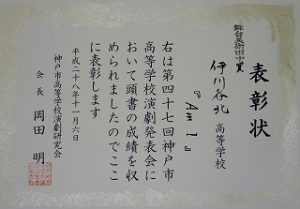 表彰状
舞台美術田中賞
伊川谷北 高等学校
『Am I』
右は第四十七回神戸市
高等学校演劇発表会に
おいて頭書の成績を収
められましたのでここ
に表彰します
平成二十八年十一月六日
神戸市高等学校演劇研究会
会長 岡田 明